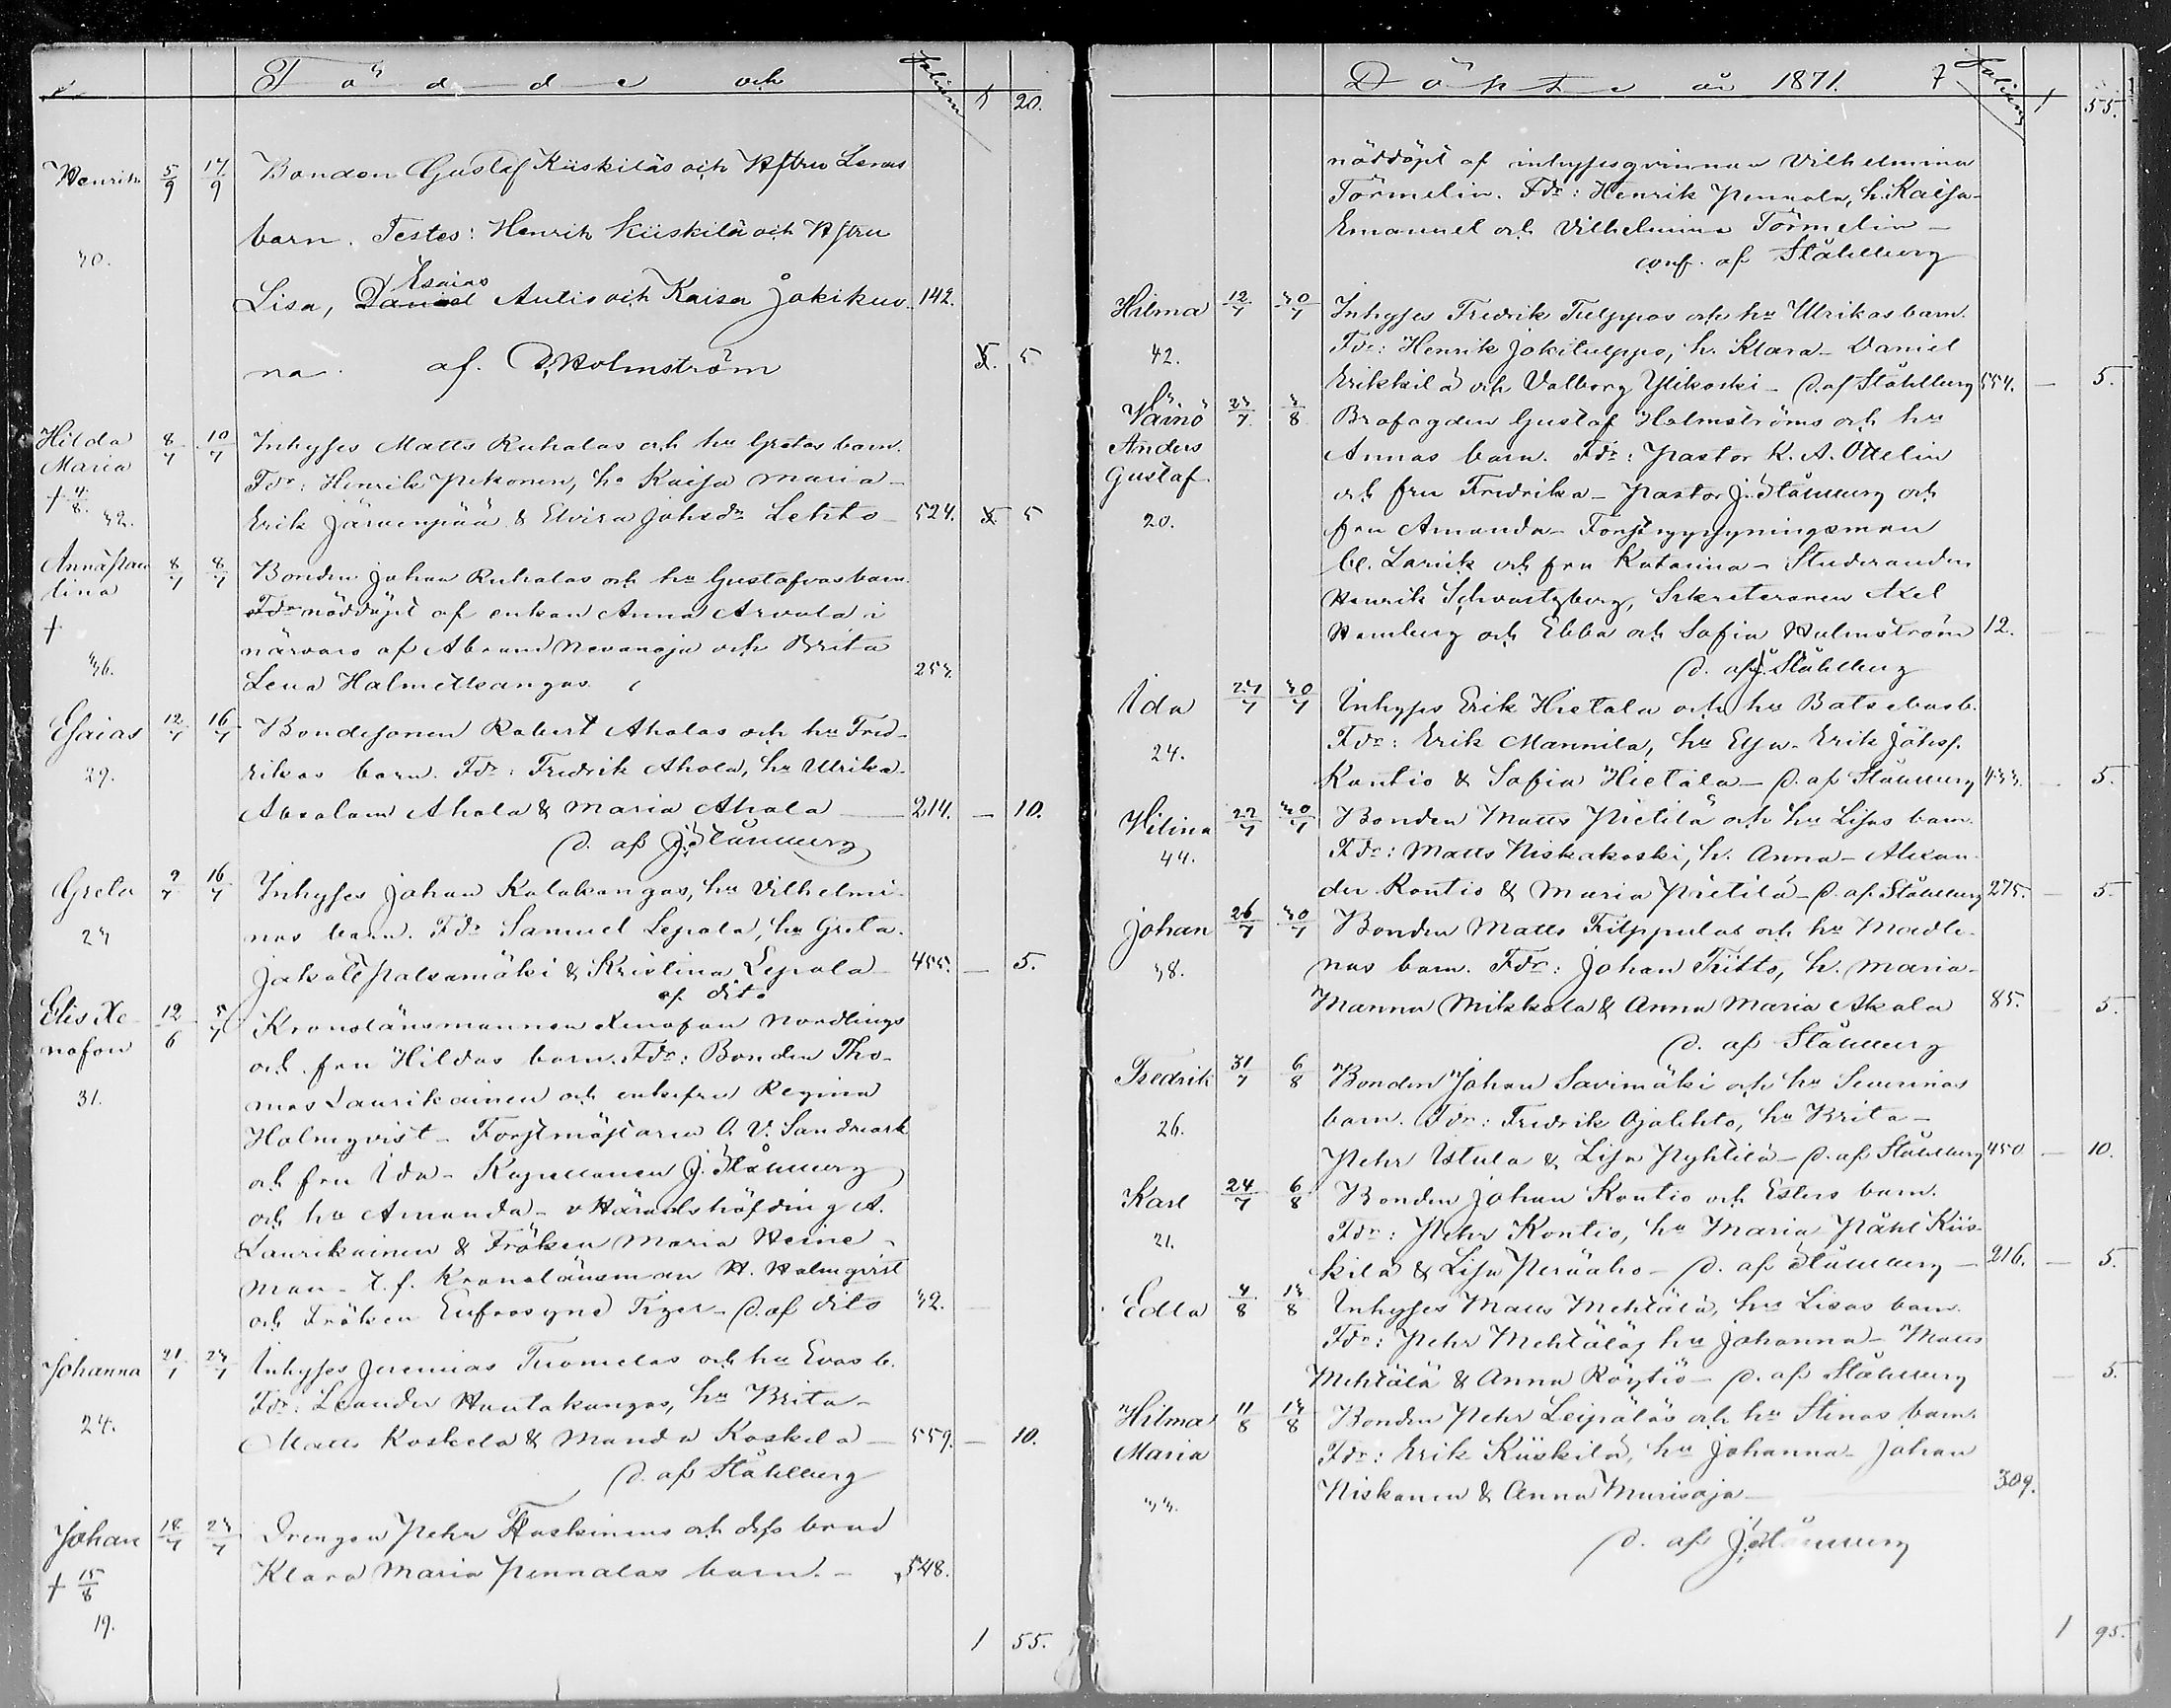 Födde och Folium 1 20.
Henrik 5/9 17/9 Bonden Gustaf Kiiskiläs och Hstru Lenas
barn. Testes: Henrik Kiiskilä och Hstru
30.
Esaias
Lisa, Daniel Antis och Kaisa Jokikuo 142.
na. af. Holmström 5
Hilda 8/7 10/7 Inhyses Matts Ruhalas och hu Gretas barn.
Maria Fdr: Henrik Pekonen, hu Kaisa Maria -
† 4/8. 32. Erik Järvenpää & Elvira Johsdr Lehto - 524. 5
Anna Pau 8/7 8/7 Bonden Johan Ruhalas och hu Gustafvas barn.
lina Fdr nöddöpt af enkan Anna Arvola i
† närvaro af Abram Nevanoja och Brita
36. Lena Halmetkangas. 253.
Esaias 12/7 16/7 Bondesonen Robert Aholas och hu Fred-
29. rikas barn. Fdr: Fredrik Ahola, hu Ulrika -
Absalom Ahola & Maria Ahola — 214. — 10.
D. af J. Ståhlberg
Greta 9/7 16/7 Inhyses Johan Kalakangas, hu Vilhelmi-
23 nas barn. Fdr Samuel Lepola, hu Greta.
Jakob Palsamäki & Kristina Lepola 455. — 5.
af dito
Elis Xe- 12/6 5/7 Kronolänsmannen Xenofon Nordlings
nofon och fru Hildas barn. Fdr: Bonden Tho-
31. mas Laurikainen och enkefru Regina
Holmqvist - Forstmästaren A. V. Sandmark
och fru Ida - Kapellanen J. Ståhlberg
och hu Amanda - v Häradshöfding A.
Laurikainen & Fröken Maria Heine-
man - t. f. Kronolänsman H. Holmqvist
och Fröken Eufrosyne Tizer - D. af dito 32. —
Johanna 21/7 23/7 Inhyses Jeremias Tuomelas och hu Evas b.
Fdr: Leander Hautakangas, hu Brita -
24. Matts Koskela & Manda Koskela — 559. — 10.
D. af Ståhlberg
Johan 18/7 23/7 Drengen Pehr Haskinens och dess brud
† 15/8 Klara Maria Pennalas barn. - 548.
19.
1 55.
Döpte år 1871. 7 Folium 1 55.
nöddöpt af inhysesqvinnan Vilhelmina
Törmelin. Fdr: Henrik Pennala, h. Kaisa -
Emanuel och Vilhelmina Törmelin -
conf. af Ståhlberg
Hilma 12/7 30/7 Inhyses Fredrik Tulppos och hu Ulrikas barn.
42. Fdr: Henrik Jokitulppo, h. Klara - Daniel
Erikkilä och Valborg Ylikoski - D. af Ståhlberg 554. — 5.
Väinö 23/7 3/8 Brofogden Gustaf Holmströms och hu
Anders Annas barn. Fdr: Pastor K. A. Ottelin
Gustaf och fru Fredrika - Pastor J. Ståhlberg och
20. fru Amanda - Forstuppsyningsman
C. Larick och fru Katarina - Studeranden
Henrik Schvartzberg, Sekreteraren Axel
Hamberg och Ebba och Sofia Holmström 12. —
D. af J. Ståhlberg
Ida 27/7 30/7 Inhyses Erik Hietala och hu Batsebas b.
24. Fdr: Erik Mannila, hu Elsa - Erik Johsf.
Kontio & Sofia Hietala - D. af Ståhlberg 433. — 5.
Hilina 22/7 30/7 Bonden Matts Pietilä och hu Lisas barn.
44. Fdr: Matts Niskakoski, h. Anna - Alexan-
der Kontio & Maria Pietilä - D. af Ståhlberg 275. — 5.
Johan 26/7 30/7 Bonden Matts Filppulas och hu Madle-
38. nas barn. Fdr: Johan Tiitto, h. Maria -
Manna Mikkola & Anna Maria Akola 85. 5.
D. af Ståhlberg
Fredrik 31/7 6/8 Bonden Johan Savimäki och hu Severinas
26. barn. Fdr: Fredrik Ojalehto, hu Brita -
Pehr Ustula & Lisa Pyhtilä - D. af Ståhlberg 450 — 10.
Karl 24/7 6/8 Bonden Johan Kontio och Esters barn.
21. Fdr: Pehr Kontio, hu Maria Påhl Kiis-
kilä & Lisa Peräaho - D. af Ståhlberg — 216. — 5.
Edla 4/8 13/8 Inhyses Matts Mehtälä, hu Lisas barn.
Fdr: Pehr Mehtälä, hu Johanna - Matts
Mehtälä & Anna Röytiö - D. af Ståhlberg — 5.
Hilma 11/8 13/8 Bonden Pehr Leipäläs och hu Stinas barn.
Maria Fdr: Erik Kiiskilä, hu Johanna - Johan
33. Niskanen & Anna Murisoja — 309.
D. af J. Ståhlberg
1 95.